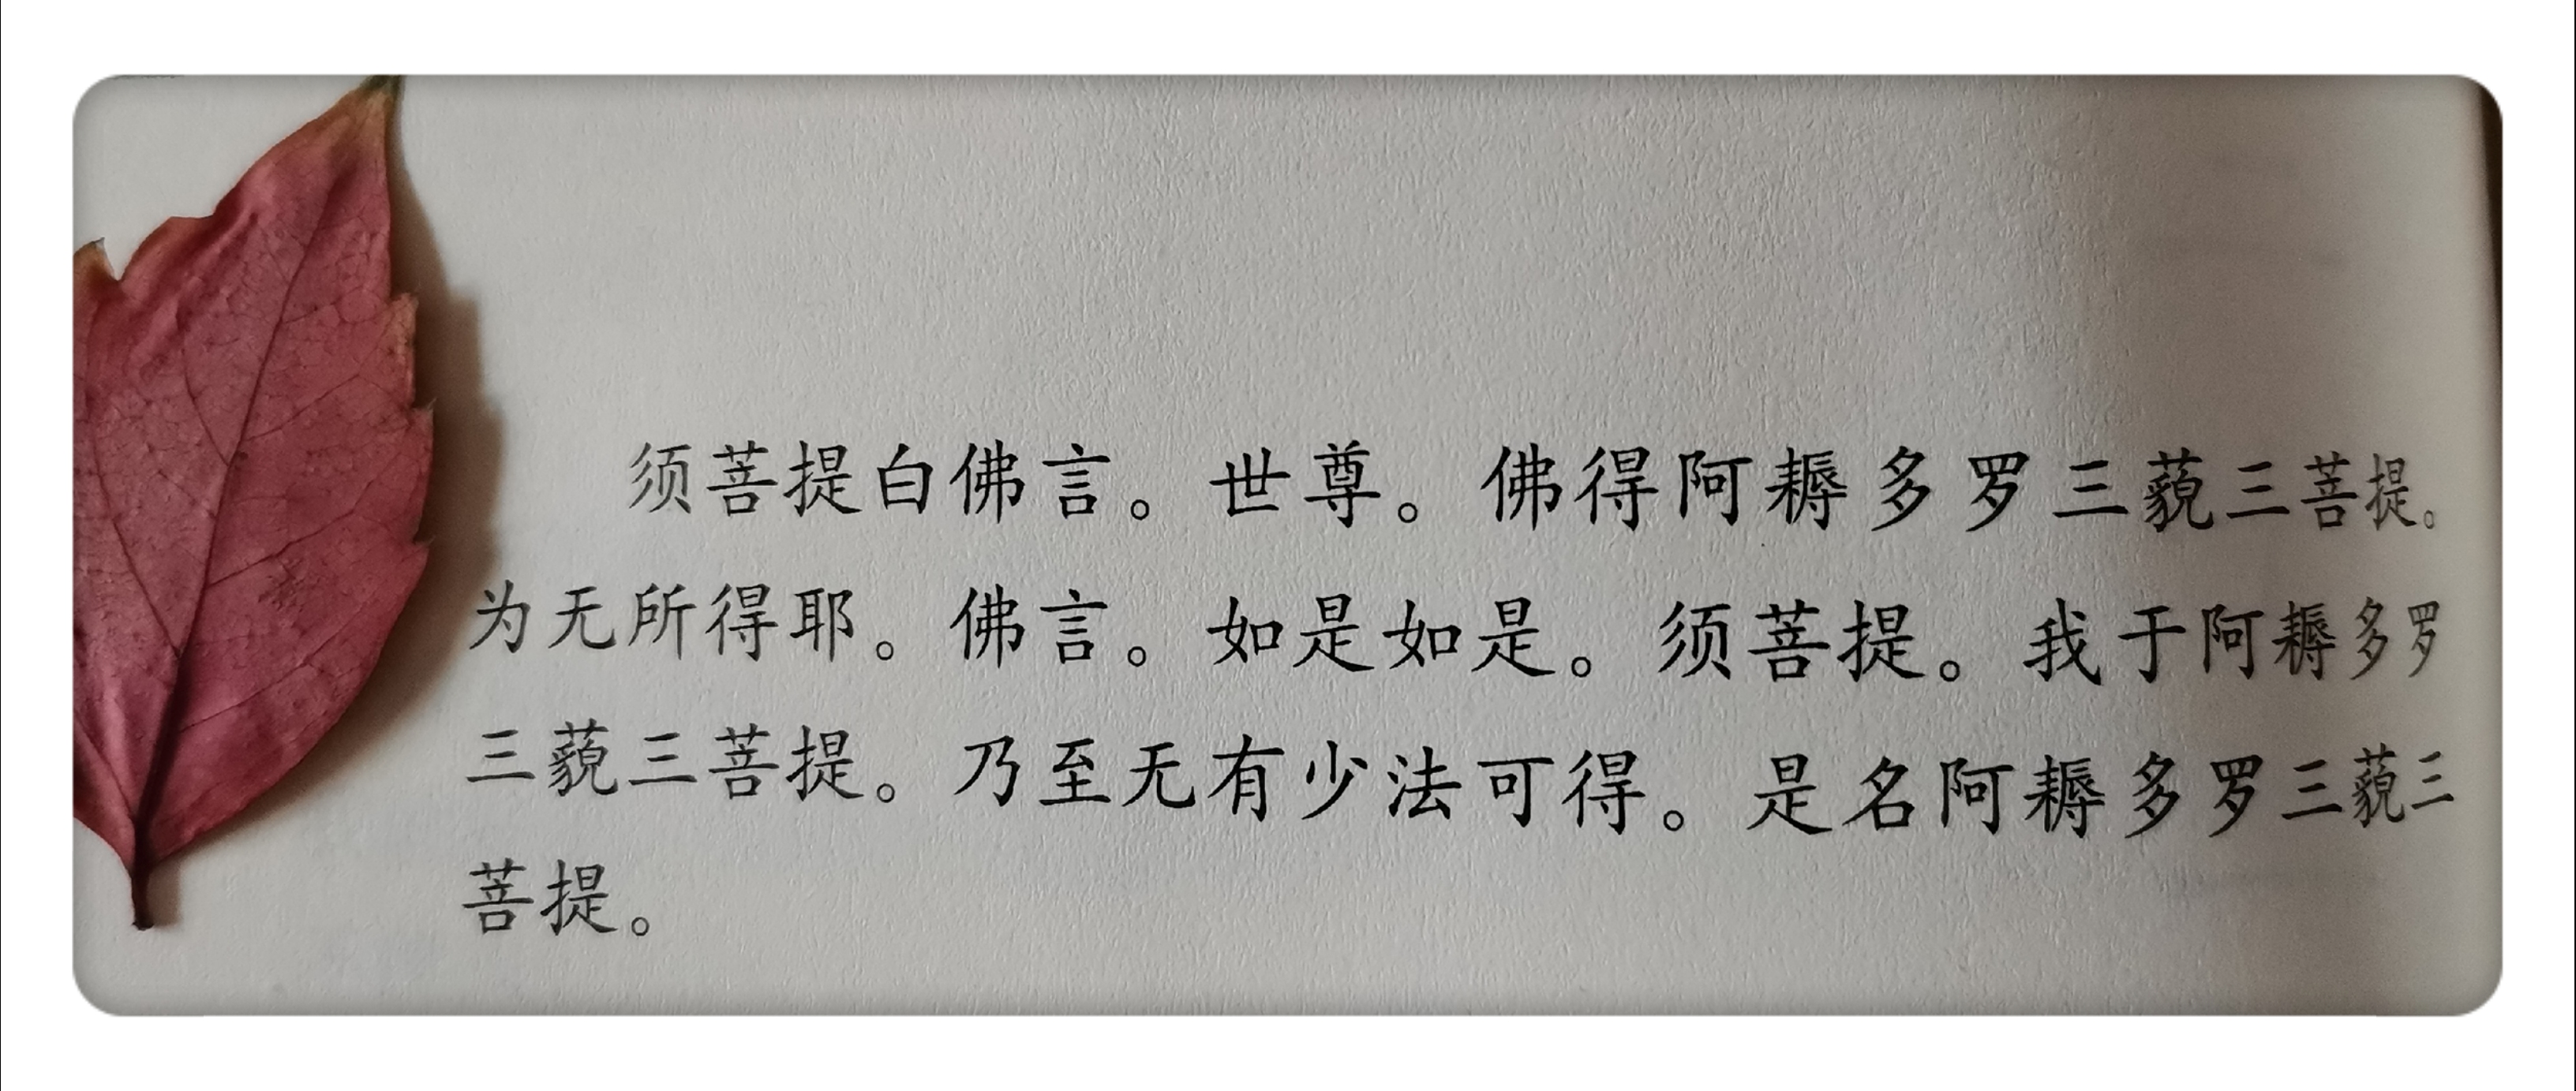 须菩提白佛言。世尊。佛得阿耨多罗三藐三菩提。
为无所得耶。佛言。如是如是。须菩提。我于阿耨多罗
三藐三菩提。乃至无有少法可得。是名阿耨多罗三藐三
菩提。